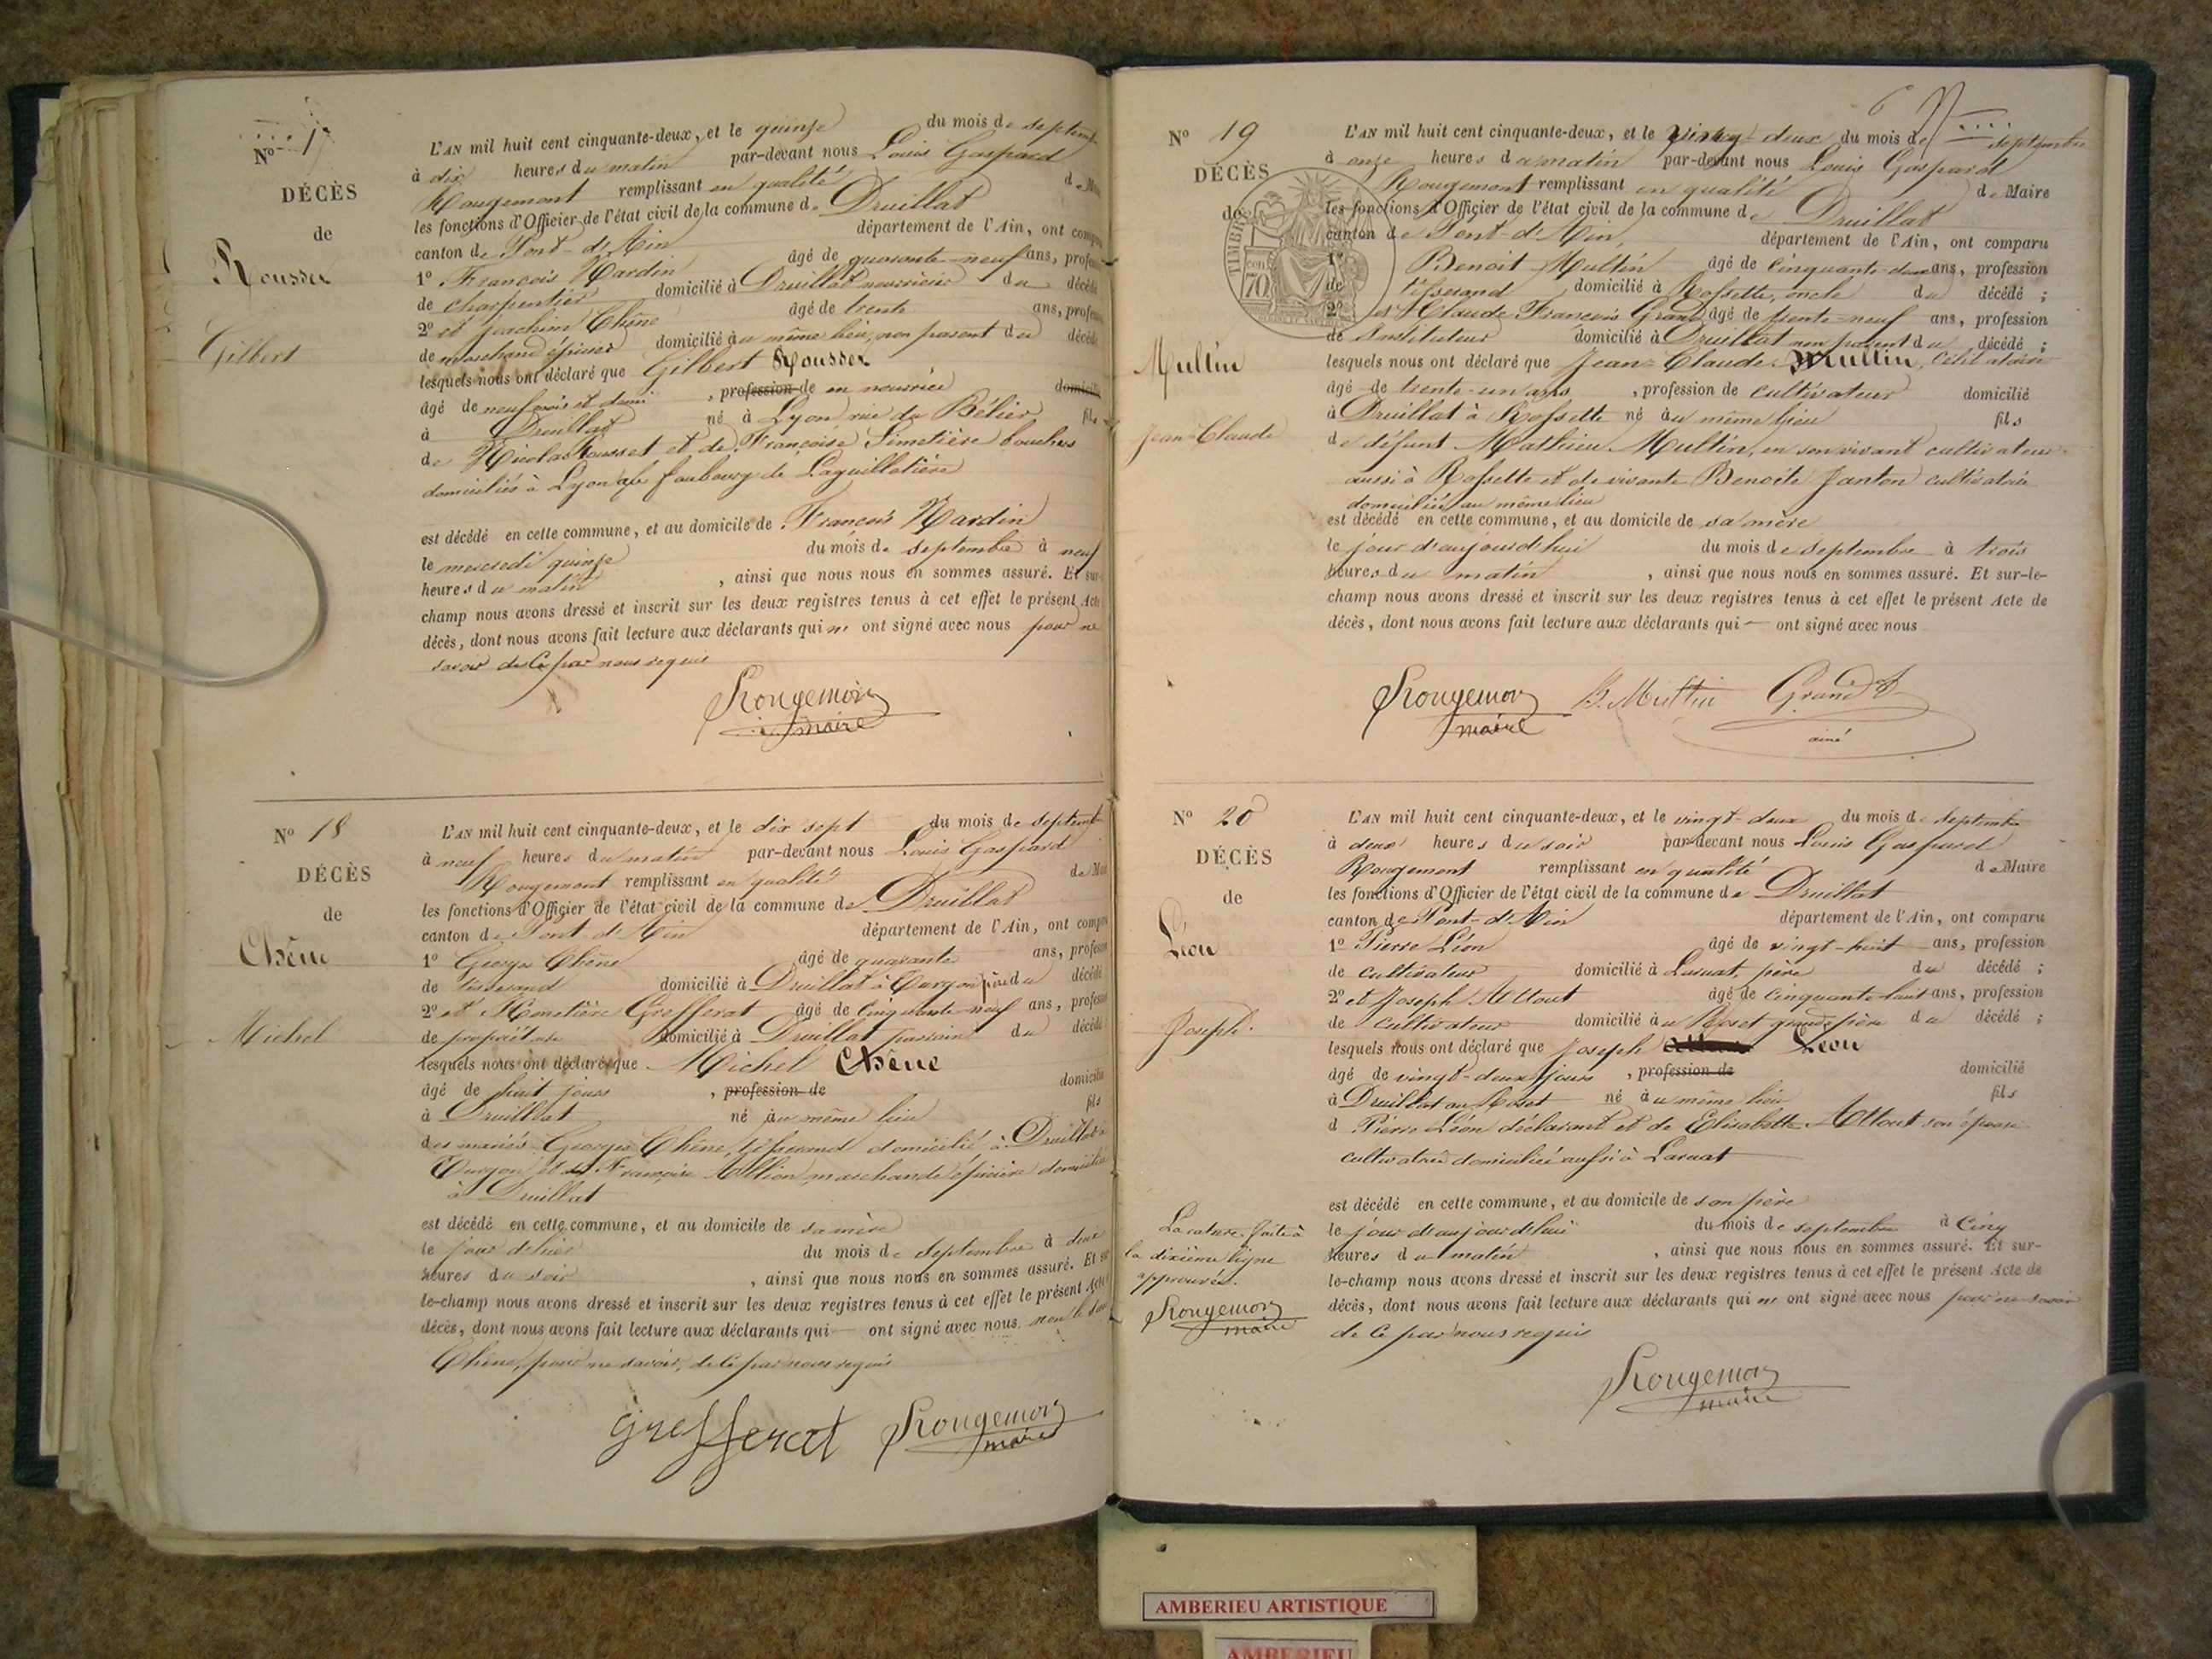 N° 17
DÉCÈS
de
Rousset
Gilbert
L'AN mil huit cent cinquante-deux, et le quinze du mois de septemb
à dix heures du matin par-devant nous Louis Gaspard
Rougemont remplissant en qualité de M
les fonctions d'Officier de l'état civil de la commune de Druillat
canton de Pont-d'Ain département de l'Ain, ont compa
1° François Nardin âgé de quarante-neuf ans, profes
de charpentier domicilié à Druillat nourricier du décédé
2° et Joachim Chêne âgé de trente ans, profes
de marchand épicier domicilié au même lieu, non parent du décédé
lesquels nous ont déclaré que Gilbert Rousset
âgé de neuf mois et demi , profession de en nourrice domicilié
à Druillat né à Lyon, rue du Bélier fils
de Nicolas Rousset et de Françoise Simetière bouchers
domiciliés à Lyon faubourg de Laguillotière
est décédé en cette commune, et au domicile de François Nardin
le mercredi quinze du mois de septembre à neuf
heures du matin , ainsi que nous nous en sommes assuré. Et sur-
champ nous avons dressé et inscrit sur les deux registres tenus à cet effet le présent Acte
décès, dont nous avons fait lecture aux déclarants qui n' ont signé avec nous pour ne
savoir de ce par nous requis
Rougemont
maire
N° 18
DÉCÈS
de
Chêne
Michel
L'AN mil huit cent cinquante-deux, et le dix sept du mois de septemb
à neuf heures du matin par-devant nous Louis Gaspard
Rougemont remplissant en qualité de Mai
les fonctions d'Officier de l'état civil de la commune de Druillat
canton de Pont d'Ain département de l'Ain, ont compa
1° George Chêne âgé de quarante ans, profession
de tisserand domicilié à Druillat à Turgon père du décédé
2° et Grefferat âgé de cinquante-neuf ans, profess
de propriétaire domicilié à Druillat parrain du décédé
lesquels nous ont déclaré que Michel Chêne
âgé de huit jours , profession de domicilié
à Druillat né au même lieu fils
des mariés Georges Chêne, tisserand domicilié à Druillat à
Turgon et de Françoise Allion, marchande épicière domiciliée
à Druillat
est décédé en cette commune, et au domicile de sa mère
le jour d'hier du mois de septembre à deux
heures du soir , ainsi que nous nous en sommes assuré. Et sur
le-champ nous avons dressé et inscrit sur les deux registres tenus à cet effet le présent Acte
décès, dont nous avons fait lecture aux déclarants qui — ont signé avec nous non le
Chêne, pour ne savoir, de ce par nous requis
Grefferat Rougemont
maire
6
N° 19
DÉCÈS
de
Mullin
Jean-Claude
TIMBRE
70
L'AN mil huit cent cinquante-deux, et le vingt-deux du mois de septembre
à onze heures du matin par-devant nous Louis Gaspard
Rougemont remplissant en qualité de Maire
les fonctions d'Officier de l'état civil de la commune de Druillat
canton de Pont-d'Ain, département de l'Ain, ont comparu
1° Benoit Mullin âgé de cinquante-deux ans, profession
de tisserand domicilié à Rossette, oncle du décédé ;
2° et Claude François Grand âgé de trente-neuf ans, profession
de Instituteur domicilié à Druillat non parent du décédé ;
lesquels nous ont déclaré que Jean-Claude Mullin, célibataire
âgé de trente-un ans , profession de cultivateur domicilié
à Druillat à Rossette né au même lieu fils
de défunt Mathieu Mullin, en son vivant cultivateur
aussi à Rossette et de vivante Benoite Janton cultivatrice
domiciliée au même lieu
est décédé en cette commune, et au domicile de sa mère
le jour d'aujourd'hui du mois de septembre à trois
heures du matin , ainsi que nous nous en sommes assuré. Et sur-le-
champ nous avons dressé et inscrit sur les deux registres tenus à cet effet le présent Acte de
décès, dont nous avons fait lecture aux déclarants qui — ont signé avec nous
Rougemont B. Mullin Grand
maire ainé
N° 20
DÉCÈS
de
Léon
Joseph.
L'AN mil huit cent cinquante-deux, et le vingt-deux du mois de septembre
à deux heures du soir par-devant nous Louis Gaspard
Rougemont remplissant en qualité de Maire
les fonctions d'Officier de l'état civil de la commune de Druillat
canton de Pont-d'Ain département de l'Ain, ont comparu
1° Pierre Léon âgé de vingt-huit ans, profession
de cultivateur domicilié à Laruat, père du décédé ;
2° et Joseph Altout âgé de cinquante huit ans, profession
de cultivateur domicilié au Roset grand père du décédé ;
lesquels nous ont déclaré que Joseph Léon
âgé de vingt-deux jours , profession de domicilié
à Druillat au Roset né au même lieu fils
d Pierre Léon déclarant et de Elisabeth Altout son épouse
cultivatrice domiciliée aussi à Laruat
est décédé en cette commune, et au domicile de son père
le jour d'aujourd'hui du mois de septembre à cinq
heures du matin , ainsi que nous nous en sommes assuré. Et sur-
le-champ nous avons dressé et inscrit sur les deux registres tenus à cet effet le présent Acte de
décès, dont nous avons fait lecture aux déclarants qui n' ont signé avec nous pour ne savoir
de ce par nous requis
Rougemont
maire
La rature faite à
la dixième ligne
approuvée.
Rougemont
maire
AMBERIEU ARTISTIQUE
AMBERIEU